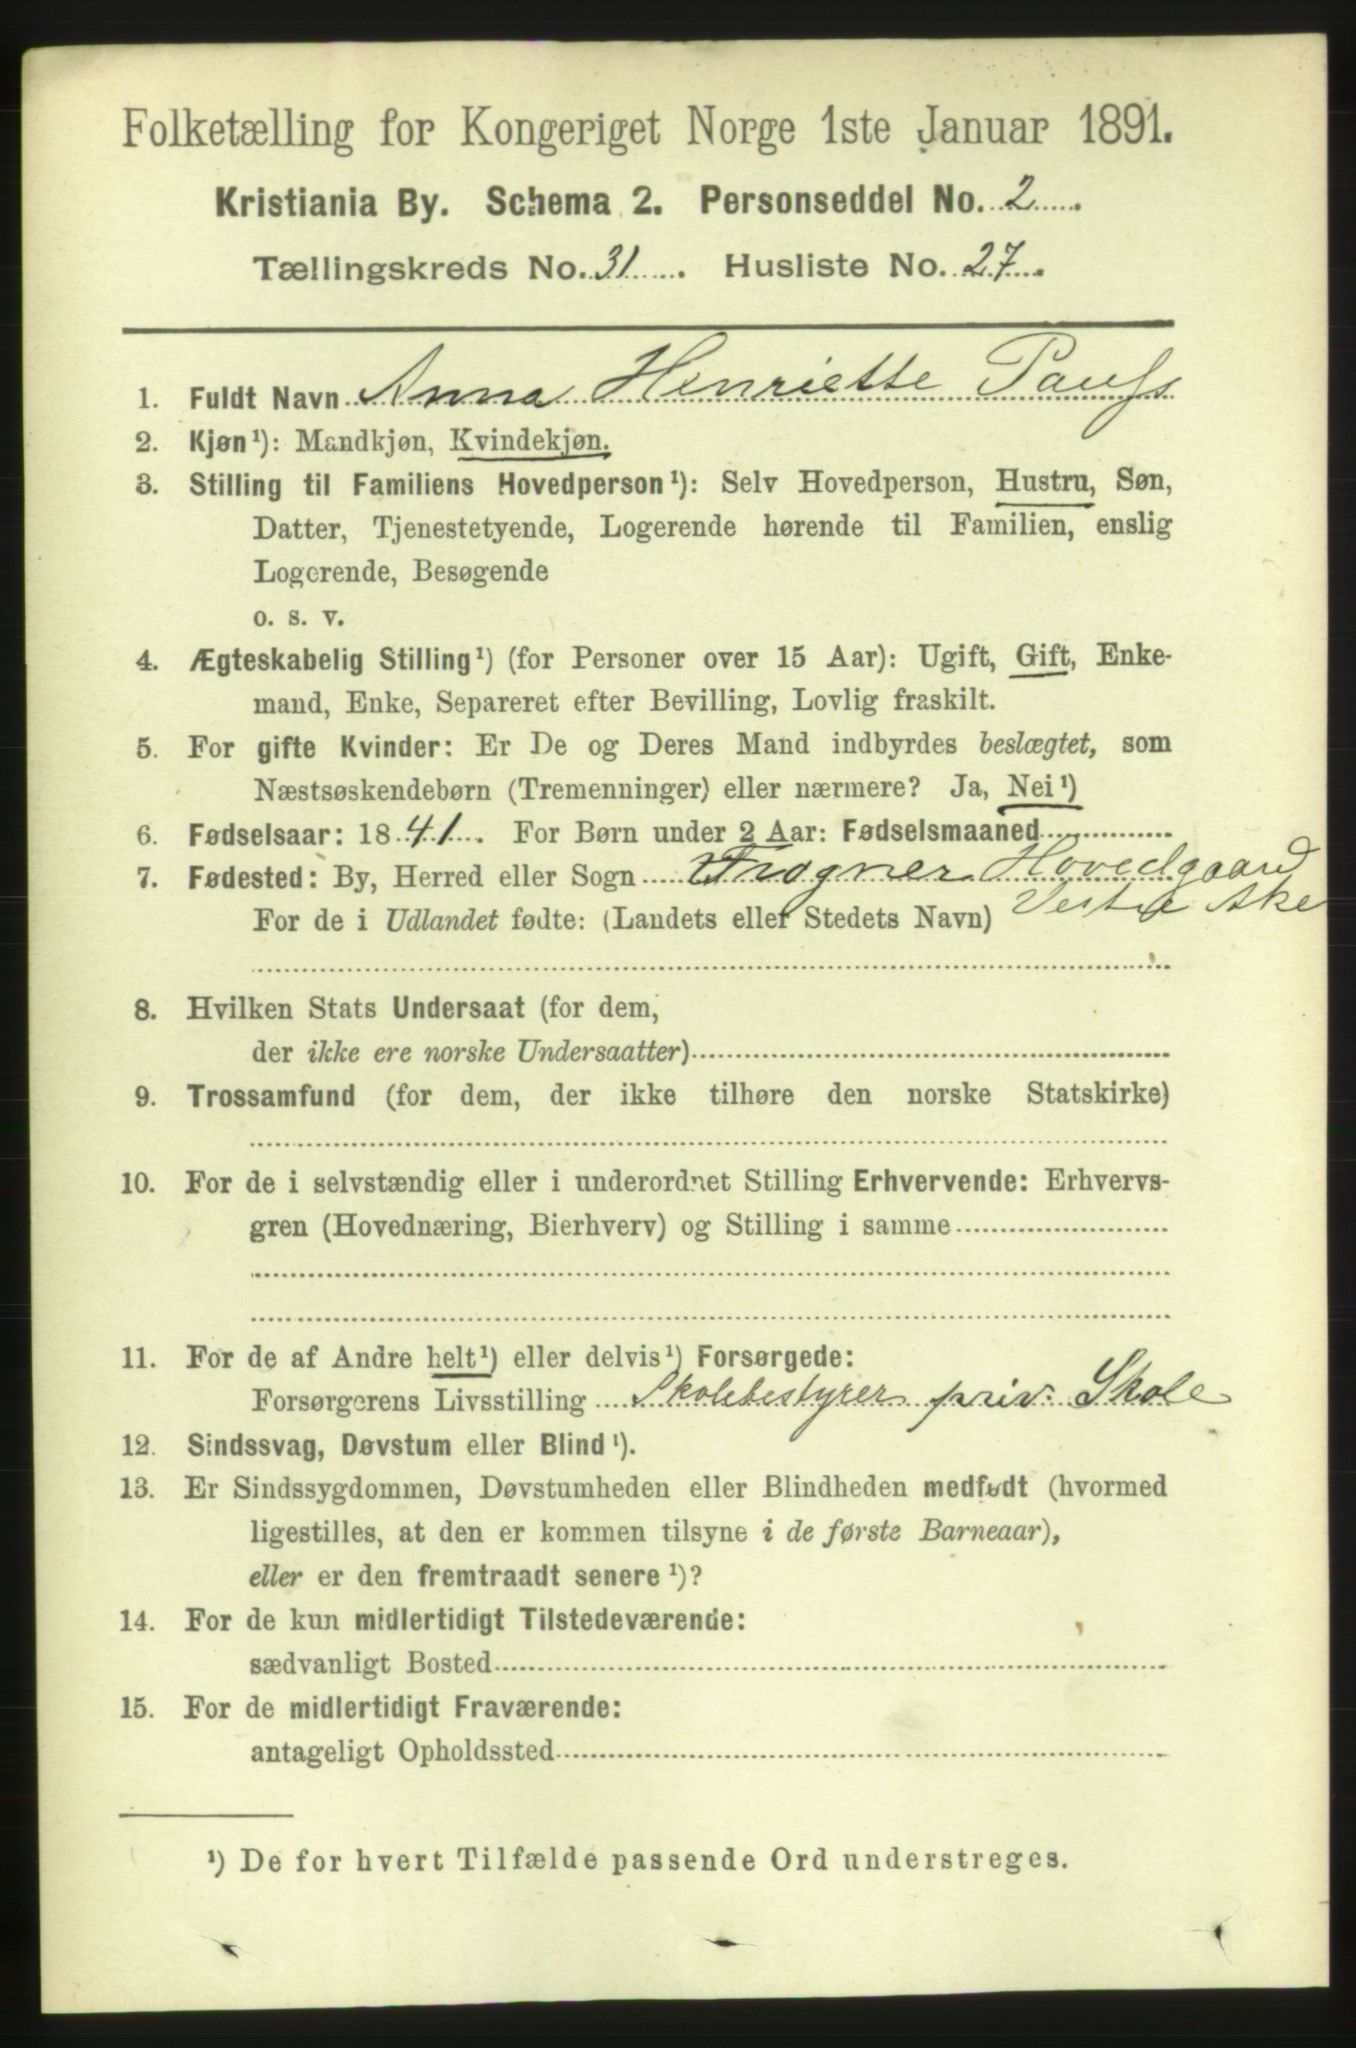 Folketælling for Kongeriget Norge 1ste Januar 1891.
Kristiania By. Schema 2. Personseddel No. 2
Tællingskreds No. 31. Husliste No. 27.
1. Fuldt Navn Anna Henriette Pauss
2. Kjøn¹): Mandkjøn, Kvindekjøn.
3. Stilling til Familiens Hovedperson¹): Selv Hovedperson, Hustru, Søn,
Datter, Tjenestetyende, Logerende hørende til Familien, enslig
Logerende, Besøgende
o. s. v.
4. Ægteskabelig Stilling¹) (for Personer over 15 Aar): Ugift, Gift, Enke-
mand, Enke, Separeret efter Bevilling, Lovlig fraskilt.
5. For gifte Kvinder: Er De og Deres Mand indbyrdes beslægtet, som
Næstsøskendebørn (Tremenninger) eller nærmere? Ja, Nei¹)
6. Fødselsaar: 1841. For Børn under 2 Aar: Fødselsmaaned
7. Fødested: By, Herred eller Sogn Frogner Hovedgaard
For de i Udlandet fødte: (Landets eller Stedets Navn) Vestre Ake
8. Hvilken Stats Undersaat (for dem,
der ikke ere norske Undersaatter)
9. Trossamfund (for dem, der ikke tilhøre den norske Statskirke)
10. For de i selvstændig eller i underordnet Stilling Erhvervende: Erhvervs-
gren (Hovednæring, Bierhverv) og Stilling i samme
11. For de af Andre helt¹) eller delvis¹) Forsørgede:
Forsørgerens Livsstilling Skolebestyrer priv. Skole
12. Sindssvag, Døvstum eller Blind¹).
13. Er Sindssygdommen, Døvstumheden eller Blindheden medfødt (hvormed
ligestilles, at den er kommen tilsyne i de første Barneaar),
eller er den fremtraadt senere¹)?
14. For de kun midlertidigt Tilstedeværende:
sædvanligt Bosted
15. For de midlertidigt Fraværende:
antageligt Opholdssted
¹) De for hvert Tilfælde passende Ord understreges.